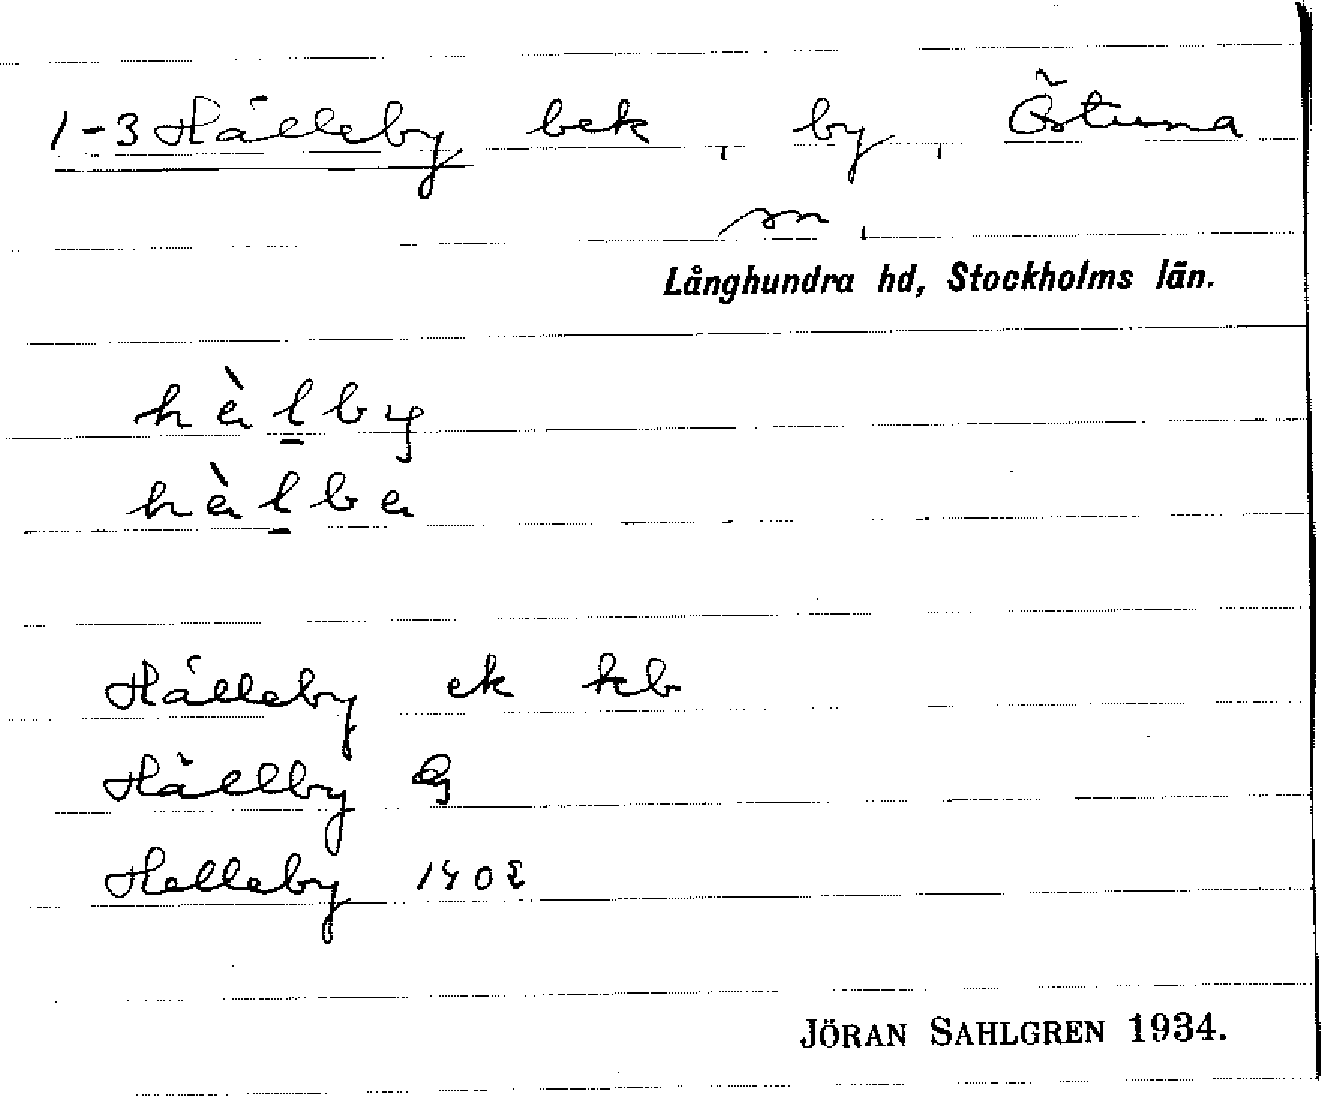 1-3 Hälleby bek, by, Östuna
sn,
Långhundra hd, Stockholms län.
hälby
Hälleby ek kb
Hällby G
Helleby 1402
JÖRAN SAHLGREN 1934.